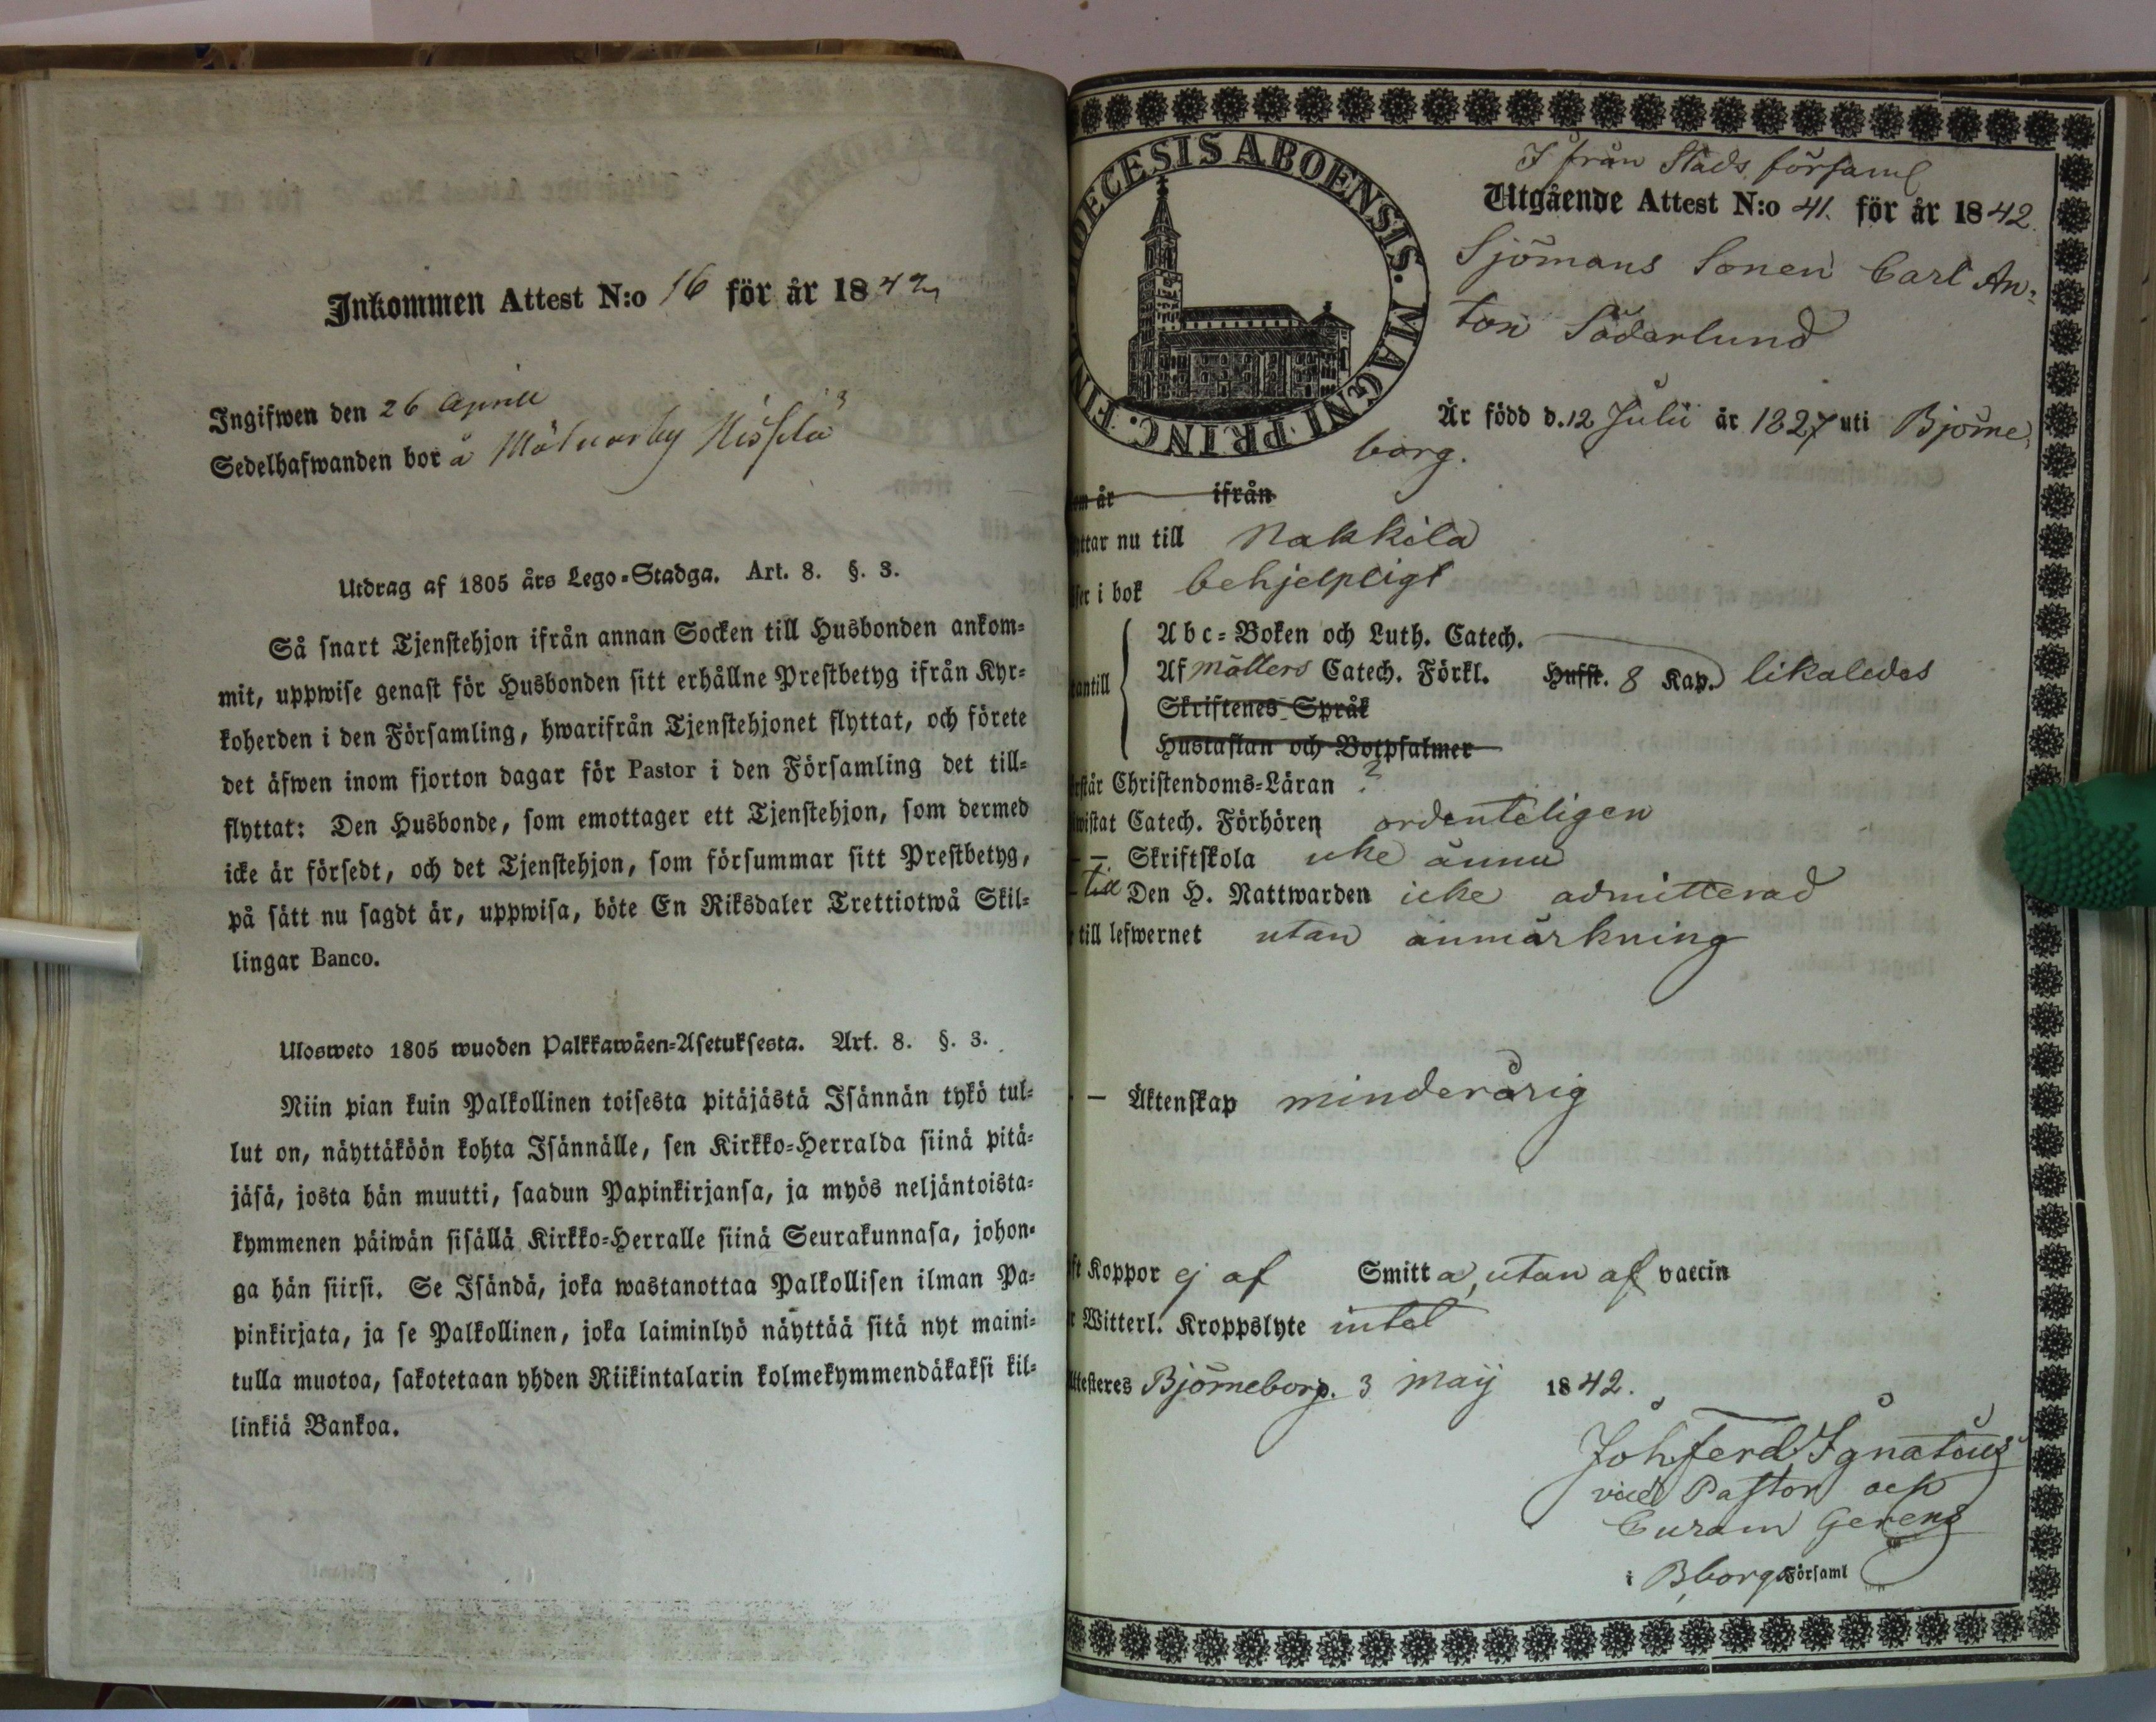 Inkommen Attest N:o 16 för år 1842
Ingifwen den 26 Aprill
Sedelhafwanden bor å
Utdrag af 1805 års Lego-Stadga. Art. 8. §. 3.
Så snart Tjenstehjon ifrån annan Socken till Husbonden ankom-
mit, uppwise genast för Husbonden sitt erhållne Prestbetyg ifrån Kyr-
koherden i den Församling, hwarifrån Tjenstehjonet flyttat, och förete
det äfwen inom fjorton dagar för Pastor i den Församling det till-
flyttat: Den Husbonde, som emottager ett Tjenstehjon, som dermed
icke är försedt, och det Tjenstehjon, som försummar sitt Prestbetyg,
på sätt nu sagdt är, uppwisa, böte En Riksdaler Trettiotwå Skil-
lingar Banco.
Ulosweto 1805 wuoden Palkkawäen-Asetuksesta. Art. 8. §. 3.
Niin pian kuin Palkollinen toisesta pitäjästä Isännän tykö tul-
lut on, näyttäköön kohta Isännälle, sen Kirkko-Herralda siinä pitä-
jäsä, josta hän muutti, saadun Papinkirjansa, ja myös neljäntoista-
kymmenen päiwän sisällä Kirkko-Herralle siinä Seurakunnasa, johon-
ga hän siirsi. Se Isändä, joka wastanottaa Palkollisen ilman Pa-
pinkirjata, ja se Palkollinen, joka laiminlyö näyttää sitä nyt maini-
tulla muotoa, sakotetaan yhden Riikintalarin kolmekymmendäkaksi kil-
linkiä Bankoa.
DIOECESIS ABOENSIS. MAGNI PRINC. FIN
I från Stads församl
Utgående Attest N:o 41. för år 1842.
Sjömans Sonen Carl An-
ton Söderlund
Är född d. 12 Julii år 1827 uti Björne-
borg.
om år ifrån
yttar nu till Nakkila
äser i bok behjelpligt
antill
Abc-Boken och Luth. Catech.
Af Möllers Catech. Förkl. Hufst. 8 Kap. likaledes
Skriftenes Språk
Hustaflan och Botpsalmer
rstår Christendoms-Läran ?
wistat Catech. Förhören ordenteligen
– – Skriftskola icke ännu
– till Den H. Nattwarden icke admitterad
r till lefwernet utan anmärkning
– – Äktenskap minderårig
ft Koppor ej af Smitta, utan af vaccin
r Witterl. Kroppslyte intet
Attesteres Björneborg. 3 Maij 1842.
Joh Ferd Ignatius
vice Pastor och
Curam Gerens
i Bborgs Församl